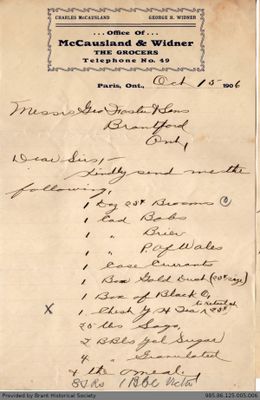 CHARLES McCAUSLAND GEORGE H. WIDNER
... Office Of ...
McCausland & Widner
THE GROCERS
Telephone No. 49
Paris, Ont., Oct 15 1906
Messrs Geo Foster & Sons
Brantford
Ont,
Dear Sirs,-
Kindly send me the
following,
1 Doz 25¢ Brooms
1 Cad Bobs
1 " Brier
1 " P. of Wales
1 Case Currants
1 Box Gold Dust (25¢ size)
1 Box of Black
to retail at
X 1 Chest Y. H Tea 25¢
25 lbs Sago,
2 BBls Yel Sugar
4 " Granulated
& the
1 BBl
Provided by Brant Historical Society 985.96.125.005.006